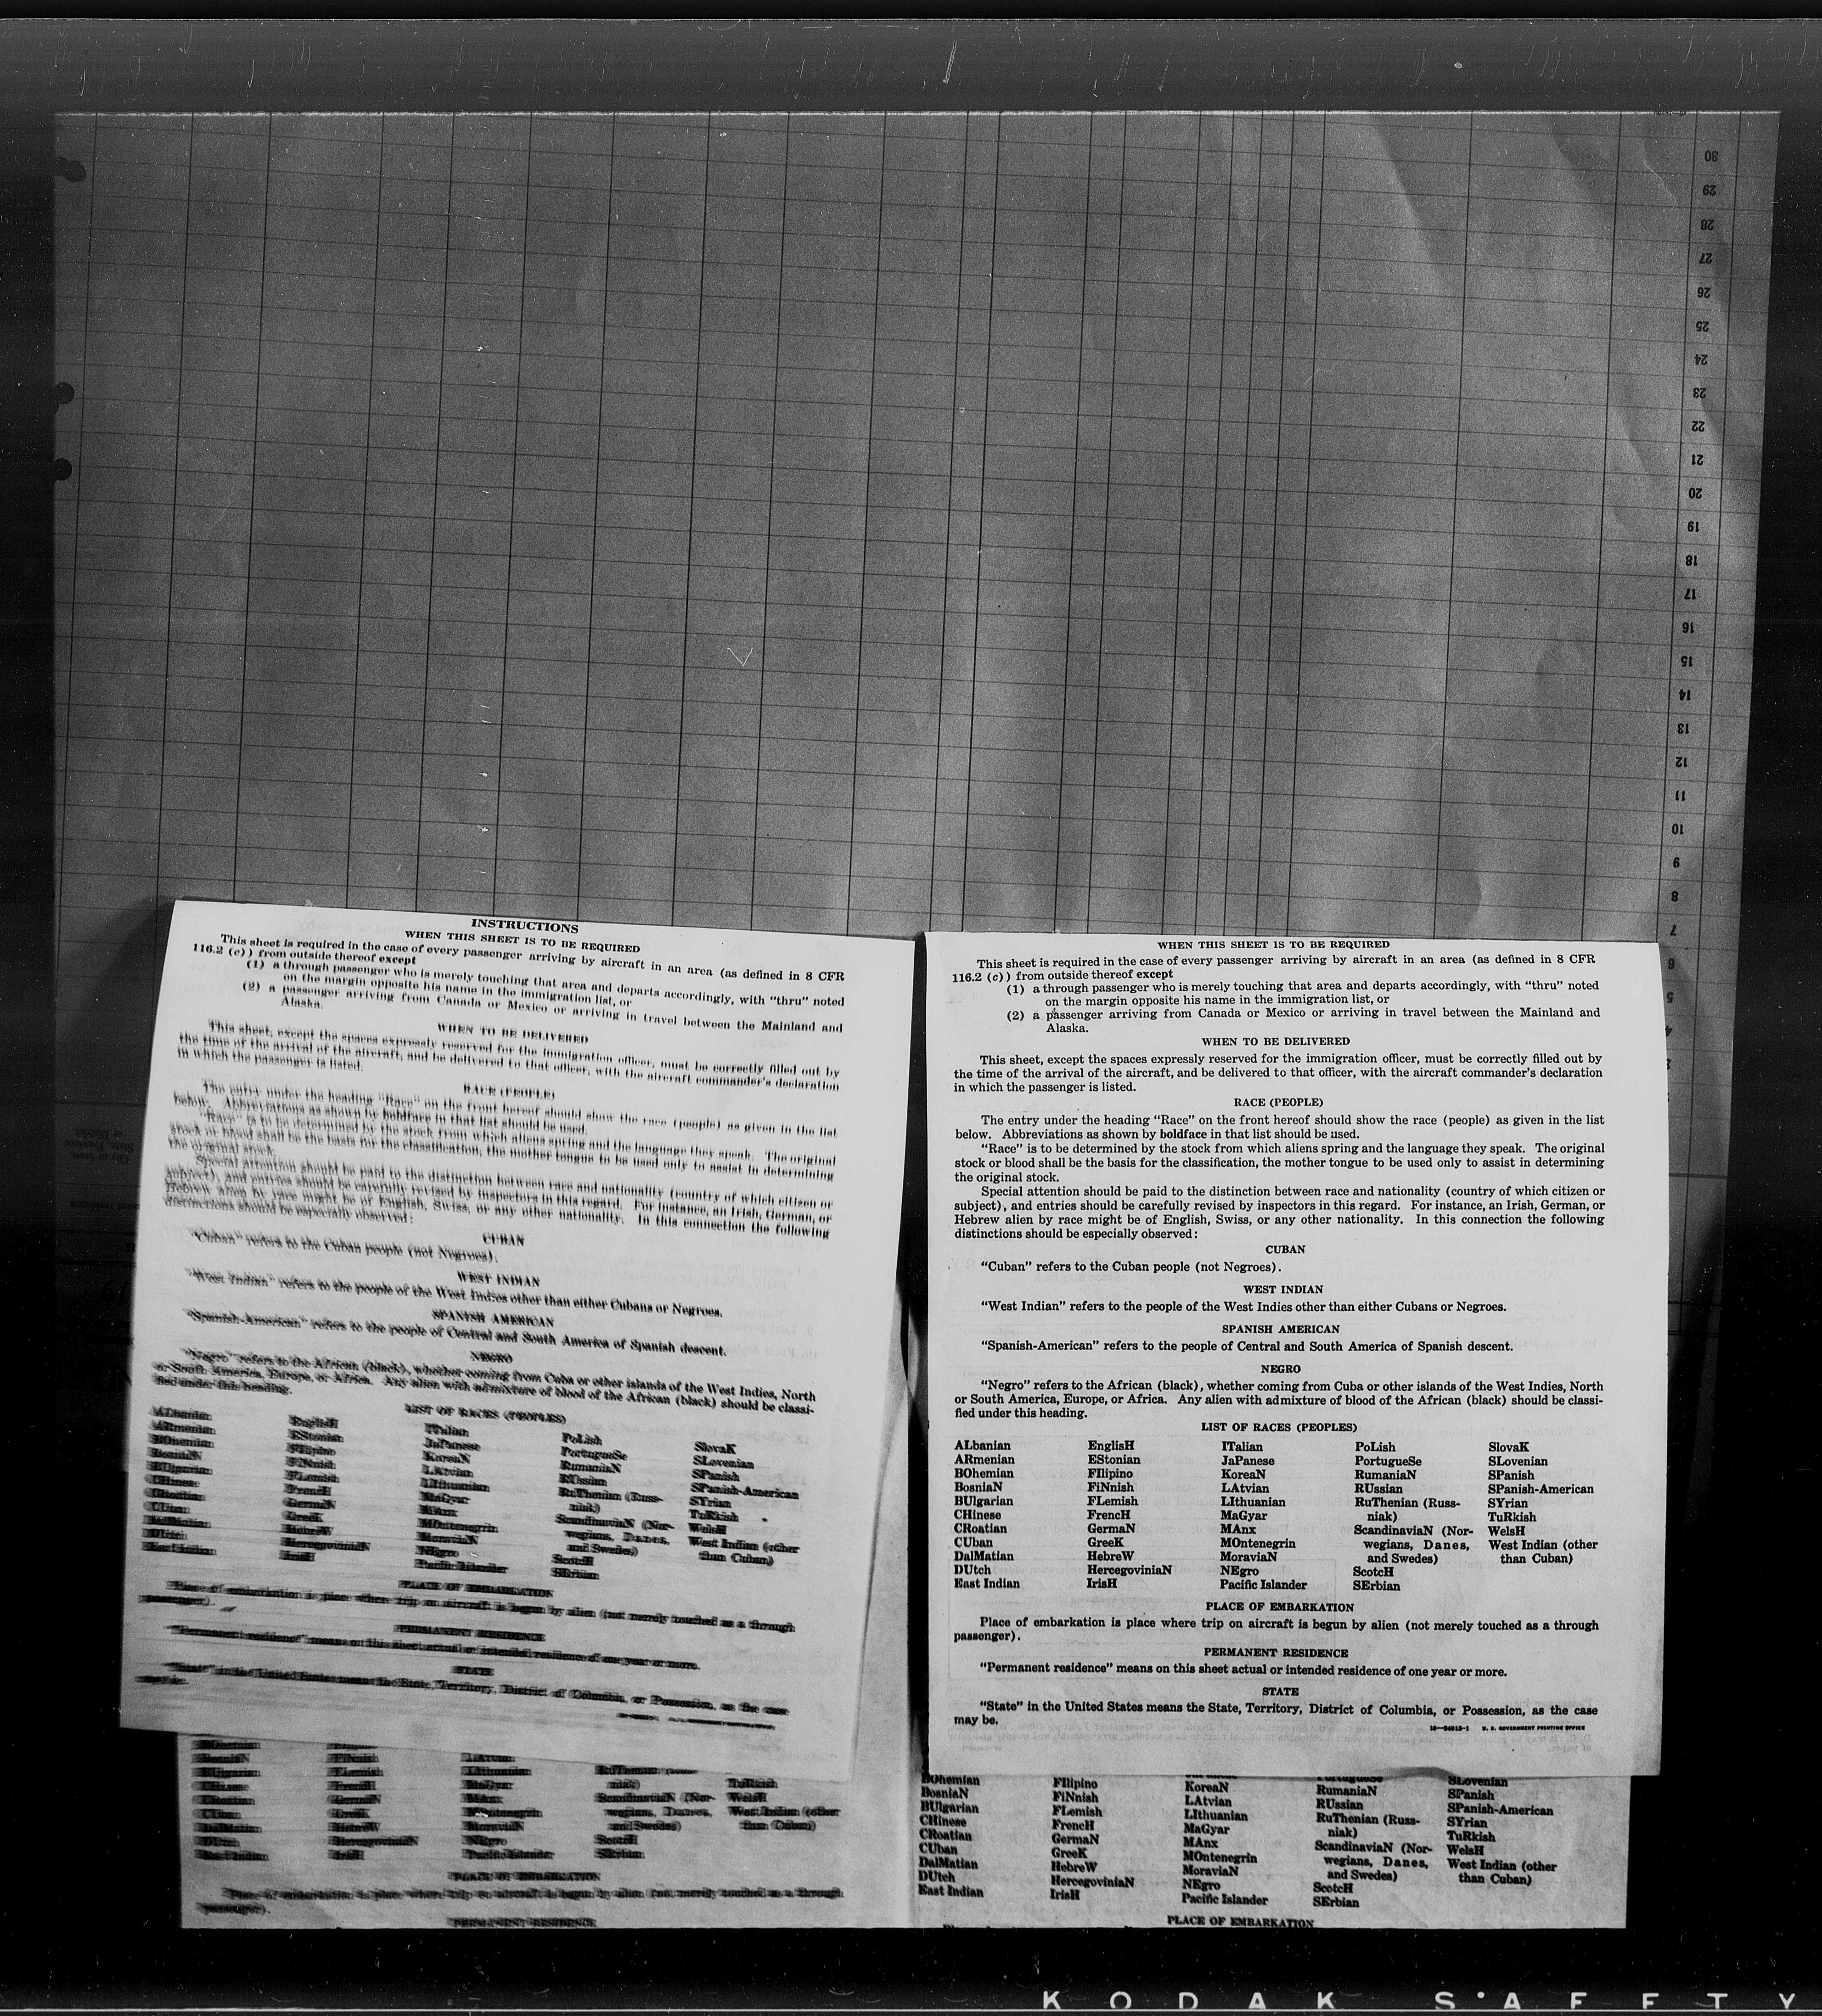 30
29
28
27
26
25
24
23
22
21
20
19
18
17
16
15
14
13
12
11
10
9
8
7
6
5
4
3
City or town,
State, Province
or District
INSTRUCTIONS
WHEN THIS SHEET IS TO BE REQUIRED
This sheet is required in the case of every passenger arriving by aircraft in an area (as defined in 8 CFR
116.2 (c)) from outside thereof except
(1) a through passenger who is merely touching that area and departs accordingly, with “thru” noted
on the margin opposite his name in the immigration list, or
(2) a passenger arriving from Canada or Mexico or arriving in travel between the Mainland and
Alaska.
WHEN TO BE DELIVERED
This sheet, except the spaces expressly reserved for the immigration officer, must be correctly filled out by
the time of the arrival of the aircraft, and be delivered to that officer, with the aircraft commander’s declaration
in which the passenger is listed.
RACE (PEOPLE)
The entry under the heading “Race” on the front hereof should show the race (people) as given in the list
below. Abbreviations as shown by boldface in that list should be used.
“Race” is to be determined by the stock from which aliens spring and the language they speak. The original
stock or blood shall be the basis for the classification, the mother tongue to be used only to assist in determining
the original stock.
Special attention should be paid to the distinction between race and nationality (country of which citizen or
subject), and entries should be carefully revised by inspectors in this regard. For instance, an Irish, German, or
Hebrew alien by race might be of English, Swiss, or any other nationality. In this connection the following
distinctions should be especially observed:
CUBAN
“Cuban” refers to the Cuban people (not Negroes).
WEST INDIAN
“West Indian” refers to the people of the West Indies other than either Cubans or Negroes.
SPANISH AMERICAN
“Spanish-American” refers to the people of Central and South America of Spanish descent.
NEGRO
“Negro” refers to the African (black), whether coming from Cuba or other islands of the West Indies, North
or South America, Europe, or Africa. Any alien with admixture of blood of the African (black) should be classi-
fied under this heading.
LIST OF RACES (PEOPLES)
ALbanian EnglisH ITalian PoLish SlovaK
ARmenian EStonian JaPanese PortugueSe SLovenian
BOhemian FIlipino KoreaN RumaniaN SPanish
BosniaN FiNnish LAtvian RUssian SPanish-American
BUlgarian FLemish LIthuanian RuThenian (Russ- SYrian
CHinese FrencH MaGyar niak) TuRkish
CRoatian GermaN MAnx ScandinaviaN (Nor- WelsH
CUban GreeK MOntenegrin wegians, Danes, West Indian (other
DalMatian HebreW MoraviaN and Swedes) than Cuban)
DUtch HercegoviniaN NEgro ScotcH
East Indian IrisH Pacific Islander SErbian
PLACE OF EMBARKATION
Place of embarkation is place where trip on aircraft is begun by alien (not merely touched as a through
passenger).
PERMANENT RESIDENCE
“Permanent residence” means on this sheet actual or intended residence of one year or more.
STATE
“State” in the United States means the State, Territory, District of Columbia, or Possession, as the case
may be.
BOhemian
BosniaN FiNnish LAtvian
BUlgarian FLemish LIthuanian RuThenian
CHinese FrencH MaGyar niak) TuRkish
CRoatian GermaN MAnx ScandinaviaN (Nor- WelsH
CUban GreeK MOntenegrin wegians, Danes, West Indian (other
DalMatian HebreW MoraviaN and Swedes) than Cuban)
DUtch HercegoviniaN NEgro ScotcH
East Indian IrisH Pacific Islander SErbian
PLACE OF EMBARKATION
Place of embarkation is place where trip on aircraft is begun by alien (not merely touched as a through
passenger).
PERMANENT RESIDENCE
WHEN THIS SHEET IS TO BE REQUIRED
This sheet is required in the case of every passenger arriving by aircraft in an area (as defined in 8 CFR
116.2 (c)) from outside thereof except
(1) a through passenger who is merely touching that area and departs accordingly, with “thru” noted
on the margin opposite his name in the immigration list, or
(2) a passenger arriving from Canada or Mexico or arriving in travel between the Mainland and
Alaska.
WHEN TO BE DELIVERED
This sheet, except the spaces expressly reserved for the immigration officer, must be correctly filled out by
the time of the arrival of the aircraft, and be delivered to that officer, with the aircraft commander’s declaration
in which the passenger is listed.
RACE (PEOPLE)
The entry under the heading “Race” on the front hereof should show the race (people) as given in the list
below. Abbreviations as shown by boldface in that list should be used.
“Race” is to be determined by the stock from which aliens spring and the language they speak. The original
stock or blood shall be the basis for the classification, the mother tongue to be used only to assist in determining
the original stock.
Special attention should be paid to the distinction between race and nationality (country of which citizen or
subject), and entries should be carefully revised by inspectors in this regard. For instance, an Irish, German, or
Hebrew alien by race might be of English, Swiss, or any other nationality. In this connection the following
distinctions should be especially observed:
CUBAN
“Cuban” refers to the Cuban people (not Negroes).
WEST INDIAN
“West Indian” refers to the people of the West Indies other than either Cubans or Negroes.
SPANISH AMERICAN
“Spanish-American” refers to the people of Central and South America of Spanish descent.
NEGRO
“Negro” refers to the African (black), whether coming from Cuba or other islands of the West Indies, North
or South America, Europe, or Africa. Any alien with admixture of blood of the African (black) should be classi-
fied under this heading.
LIST OF RACES (PEOPLES)
ALbanian EnglisH ITalian PoLish SlovaK
ARmenian EStonian JaPanese PortugueSe SLovenian
BOhemian FIlipino KoreaN RumaniaN SPanish
BosniaN FiNnish LAtvian RUssian SPanish-American
BUlgarian FLemish LIthuanian RuThenian (Russ- SYrian
CHinese FrencH MaGyar niak) TuRkish
CRoatian GermaN MAnx ScandinaviaN (Nor- WelsH
CUban GreeK MOntenegrin wegians, Danes, West Indian (other
DalMatian HebreW MoraviaN and Swedes) than Cuban)
DUtch HercegoviniaN NEgro ScotcH
East Indian IrisH Pacific Islander SErbian
PLACE OF EMBARKATION
Place of embarkation is place where trip on aircraft is begun by alien (not merely touched as a through
passenger).
PERMANENT RESIDENCE
“Permanent residence” means on this sheet actual or intended residence of one year or more.
STATE
“State” in the United States means the State, Territory, District of Columbia, or Possession, as the case
may be.
U. S. GOVERNMENT PRINTING OFFICE
BOhemian FIlipino KoreaN PortugueSe SLovenian
BosniaN FiNnish LAtvian RumaniaN SPanish
BUlgarian FLemish LIthuanian RUssian SPanish-American
CHinese FrencH MaGyar RuThenian (Russ- SYrian
CRoatian GermaN MAnx niak) TuRkish
CUban GreeK MOntenegrin ScandinaviaN (Nor- WelsH
DalMatian HebreW MoraviaN wegians, Danes, West Indian (other
DUtch HercegoviniaN NEgro and Swedes) than Cuban)
East Indian IrisH Pacific Islander ScotcH
SErbian
PLACE OF EMBARKATION
KODAK SAFETY